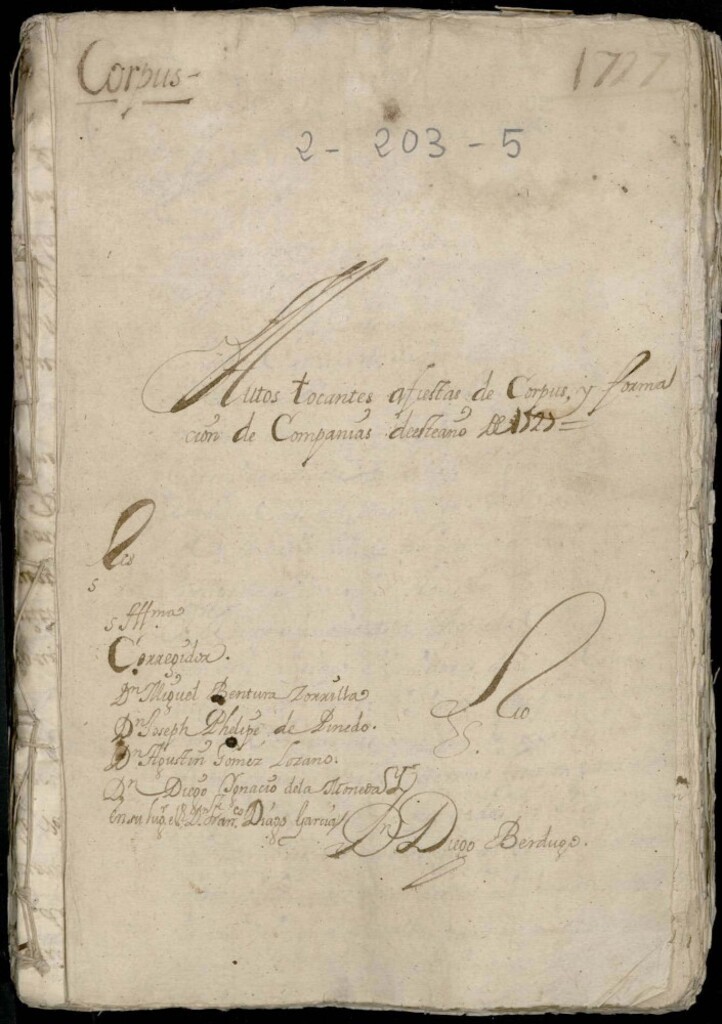 Corpus-
1727
2-203-5
Autos tocantes a fiestas de Corpus, y forma
cion de Compañias de esteaño de 1727=
SSma
Corregidor.
Dn Miguel Bentura Zorrilla
Dn Joseph Phelipe de Pinedo.
Dn Agustin Gomez Lozano.
Dn Diego Ignacio dela Moneda Y
en su lugr el Sr Dn Franco Diago Garcia
Srio
Dn Diego Berdugo.